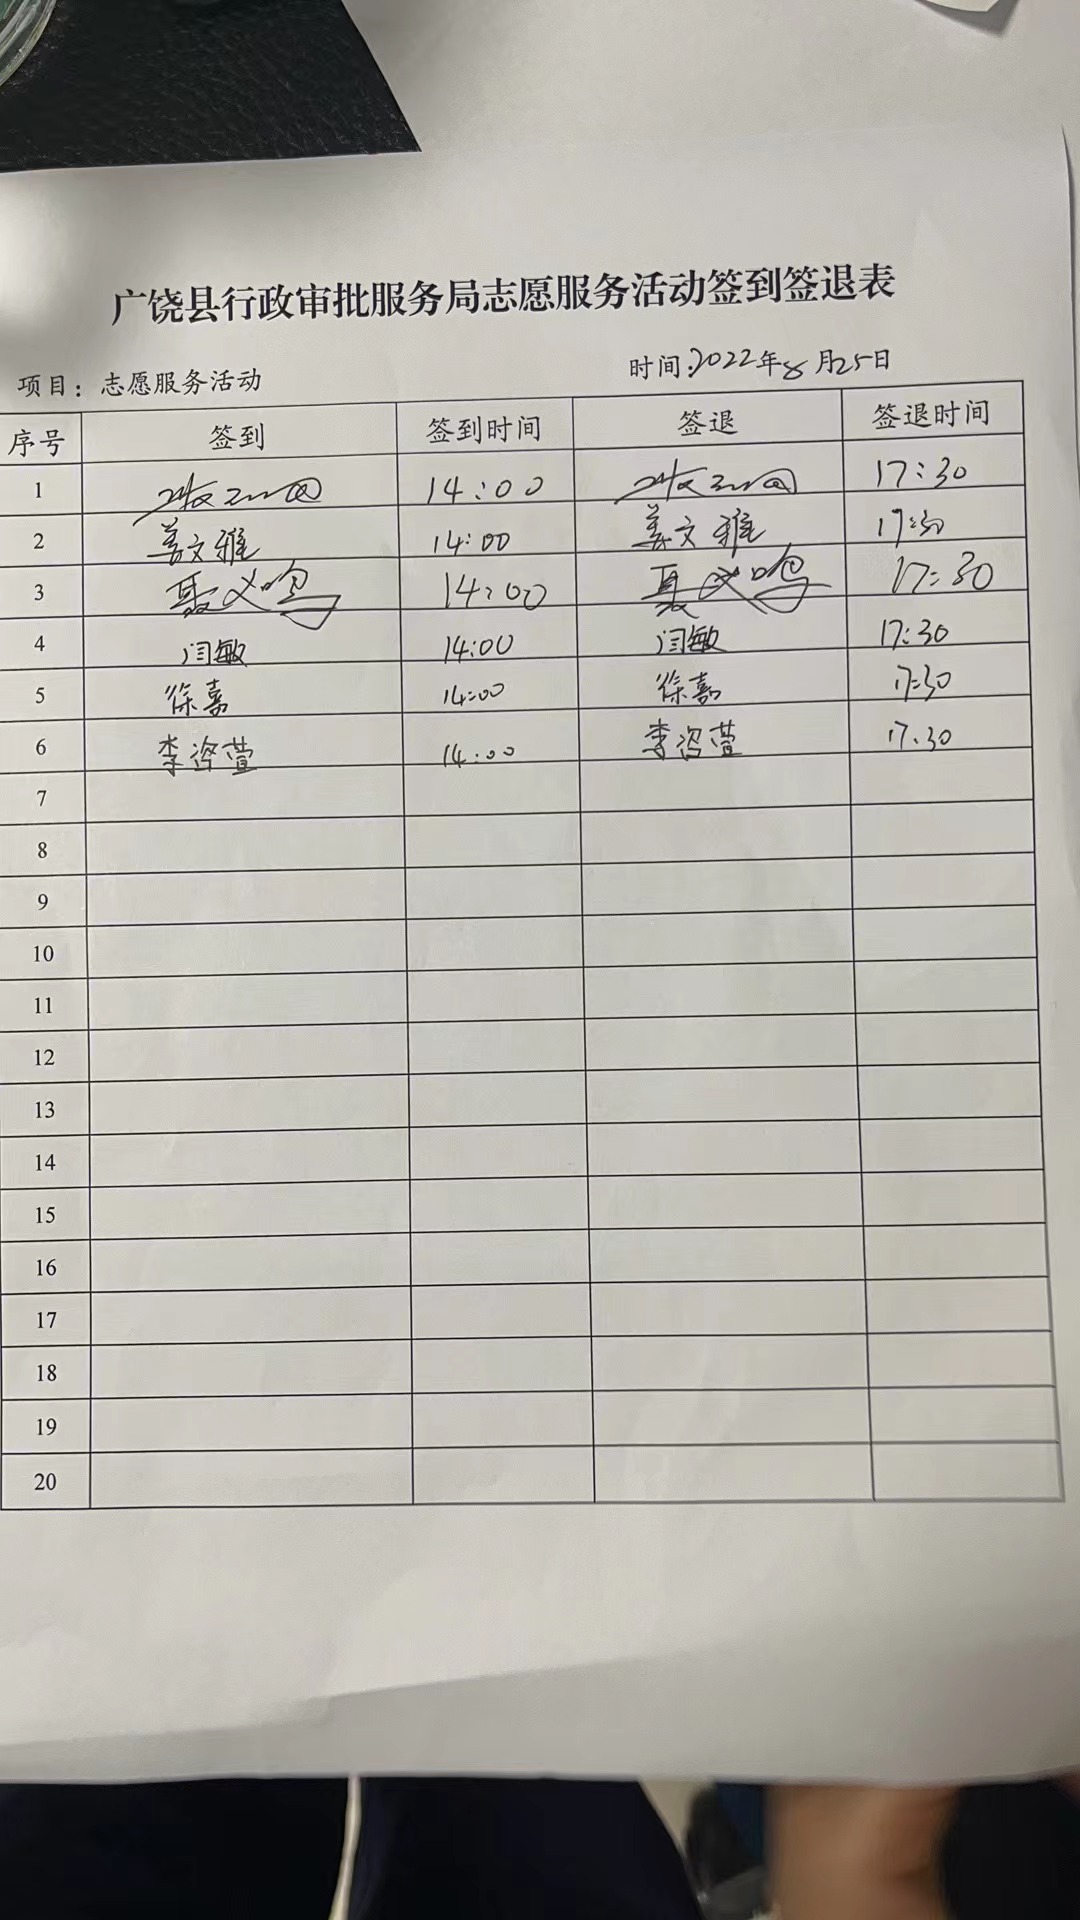 广饶县行政审批服务局志愿服务活动签到签退表
项目：志愿服务活动 时间：2022年8月25日
序号 签到 签到时间 签退 签退时间
1 14:00 17:30
2 姜文雅 14:00 姜文雅 17:30
3 聂义鸣 14:00 聂义鸣 17:30
4 闫敏 14:00 闫敏 17:30
5 徐嘉 14:00 徐嘉 17:30
6 李咨萱 14:00 李咨萱 17.30
7
8
9
10
11
12
13
14
15
16
17
18
19
20